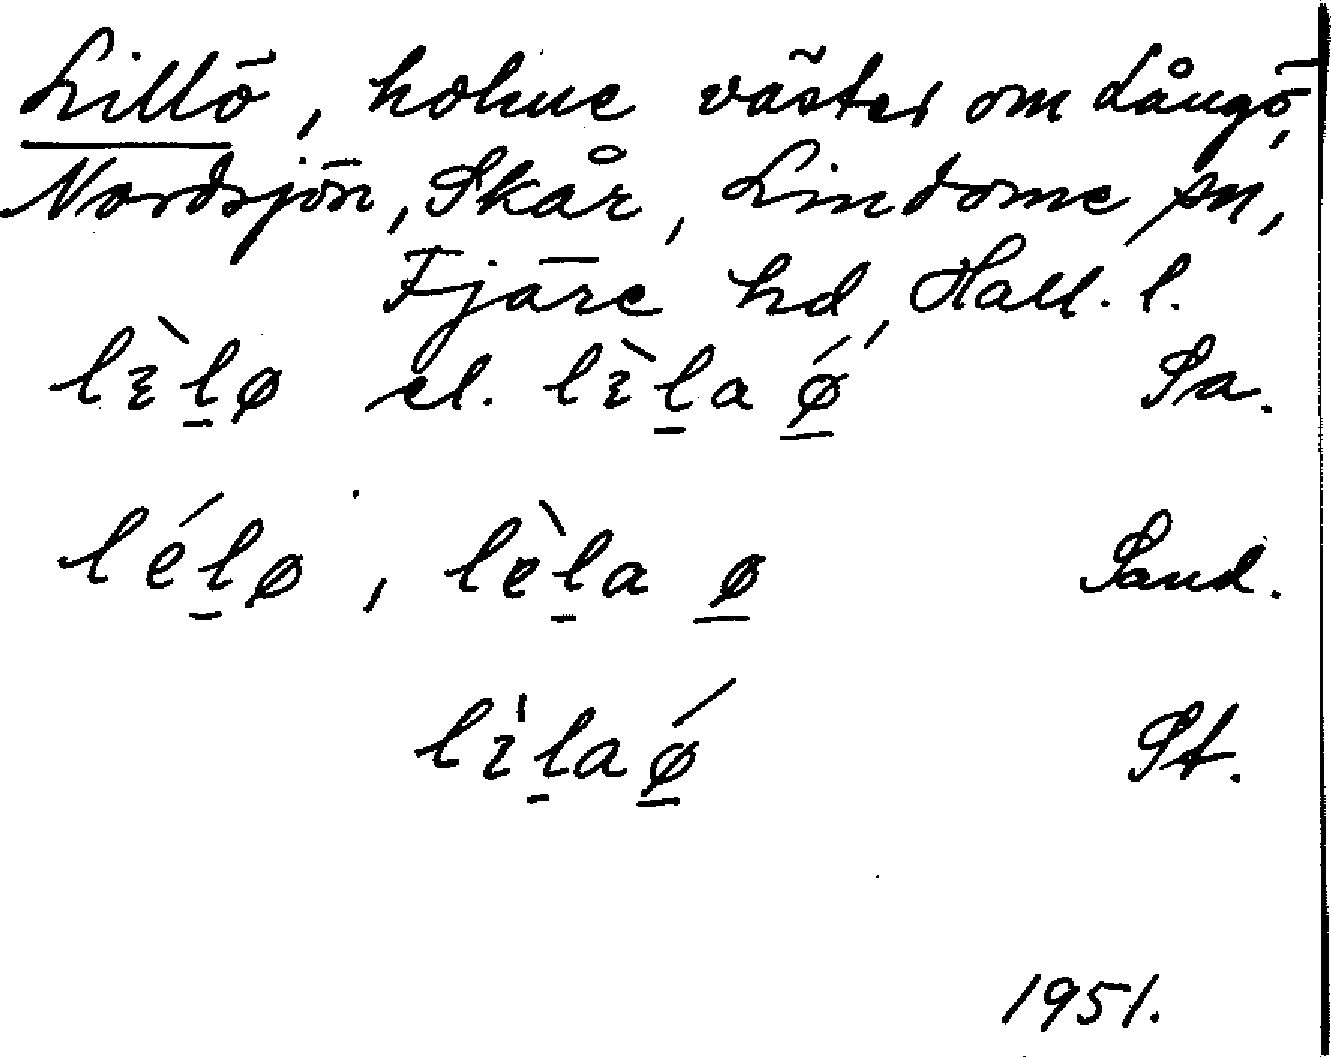 Lillö, holme väster om Långö,
Nordsjön, Skår, Lindome sn,
Fjäre hd, Hall. l.
lɪ̀l̠ø el. lɪ̀l̠a ǿ̠ Sa.
lél̠ø, lèl̠a ø̠ Sand.
lɪ̀l̠aǿ̠ St.
1951.